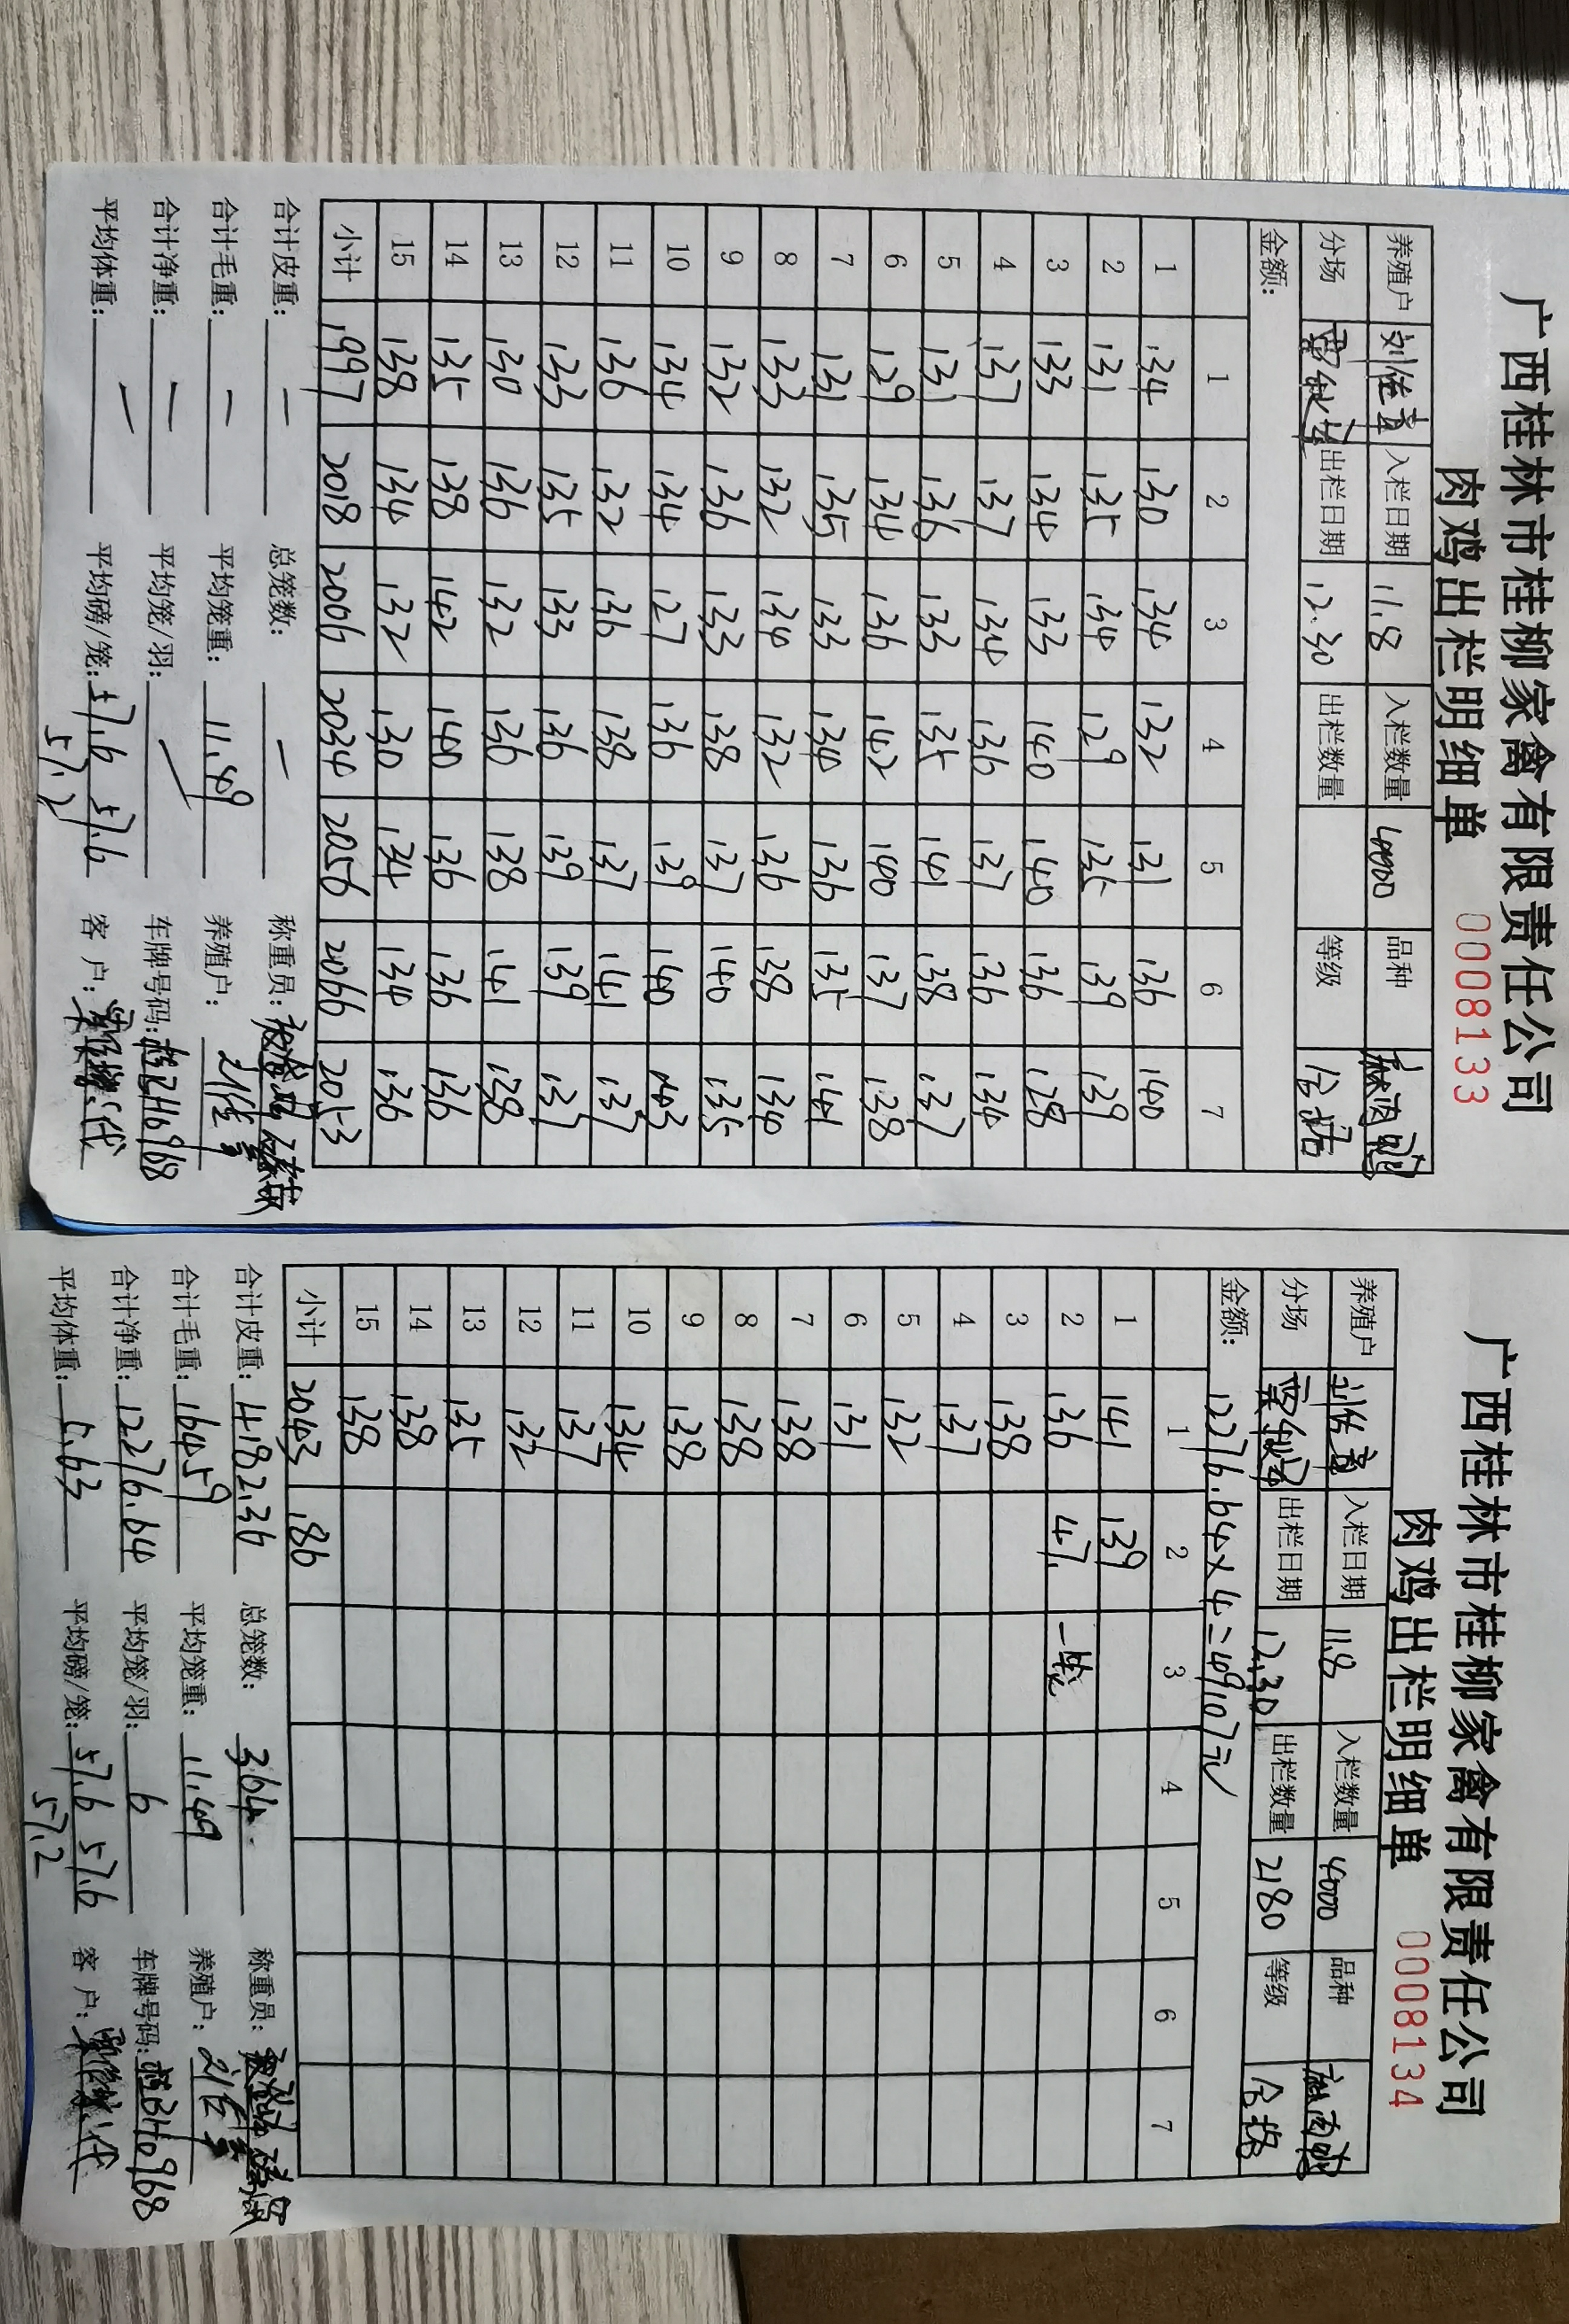 广西桂林市桂柳家禽有限责任公司
肉鸡出栏明细单 0008133
养殖户 入栏日期 11.8 入栏数量 4000 品种
分场 出栏日期 12.30 出栏数量 等级 合格
金额:
1 2 3 4 5 6 7
1 134 130 134 132 131 136 140
2 131 135 134 129 135 139 139
3 133 134 133 140 140 136 128
4 137 137 134 136 137 136 134
5 131 136 133 135 141 138 137
6 129 134 136 142 140 137 138
7 131 135 133 134 136 135 141
8 133 132 134 132 136 138 134
9 132 136 133 138 137 140 135
10 134 134 127 136 139 140 143
11 136 132 136 138 137 141 137
12 133 135 133 136 139 139 137
13 130 136 132 136 138 141 138
14 135 138 142 140 136 136 136
15 138 134 132 130 134 134 136
小计 1997 2018 2006 2034 2056 2066 2053
合计皮重: 总笼数: 称重员:
合计毛重: 平均笼重: 11.49 养殖户:
合计净重: 平均笼/羽: 车牌号码:
平均体重: 平均磅/笼: 57.6 57.6 客 户:
57.2
广西桂林市桂柳家禽有限责任公司
肉鸡出栏明细单 0008134
养殖户 入栏日期 11.8 入栏数量 4000 品种
分场 出栏日期 12.30 出栏数量 2180 等级 合格
金额: 12276.64×4=49107元
1 2 3 4 5 6 7
1 141 139
2 136 47. 一笼
3 138
4 137
5 132
6 131
7 138
8 138
9 138
10 134
11 137
12 132
13 135
14 138
15 138
小计 2043 186
合计皮重: 4182.36 总笼数: 364. 称重员:
合计毛重: 16459 平均笼重: 11.49 养殖户:
合计净重: 12276.64 平均笼/羽: 6 车牌号码:
平均体重: 5.63 平均磅/笼: 57.6 57.6 客 户:
57.2